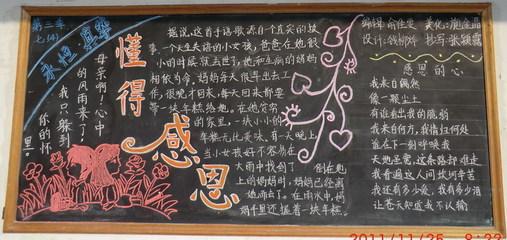 第三季
七(4)
永恒
母亲啊!心中
的风雨来了!
我只躲到
你的怀
里。
懂得
感恩
据说,这首手语歌源自一个真实的故
事,一个天生失语的小女孩,爸爸在她很
小的时候就去世了,她和生病的妈妈
相依为命。妈妈每天很早出去工
作,很晚才回来,每天回来都要
带一块年糕给她。在她贫穷
的家里,一块小小的
年糕
美味。有一天晚上
当小女孩好不容易在
大雨中找到了
倒在地
上的妈妈时,妈妈已经离
她而去了。在雨水中,妈
妈手里还握着一块年糕。
设计:
抄写:张颖露
感恩的心
我来自偶然
像一颗尘土
有谁看出我的脆弱
我来自何方,我情归何处
谁在下一刻呼唤我
天地虽宽,这条路却难走
我看遍这人间坎坷辛苦
我还有多少爱,我有多少泪
让苍天知道我不认输
2011/11/25 8:22